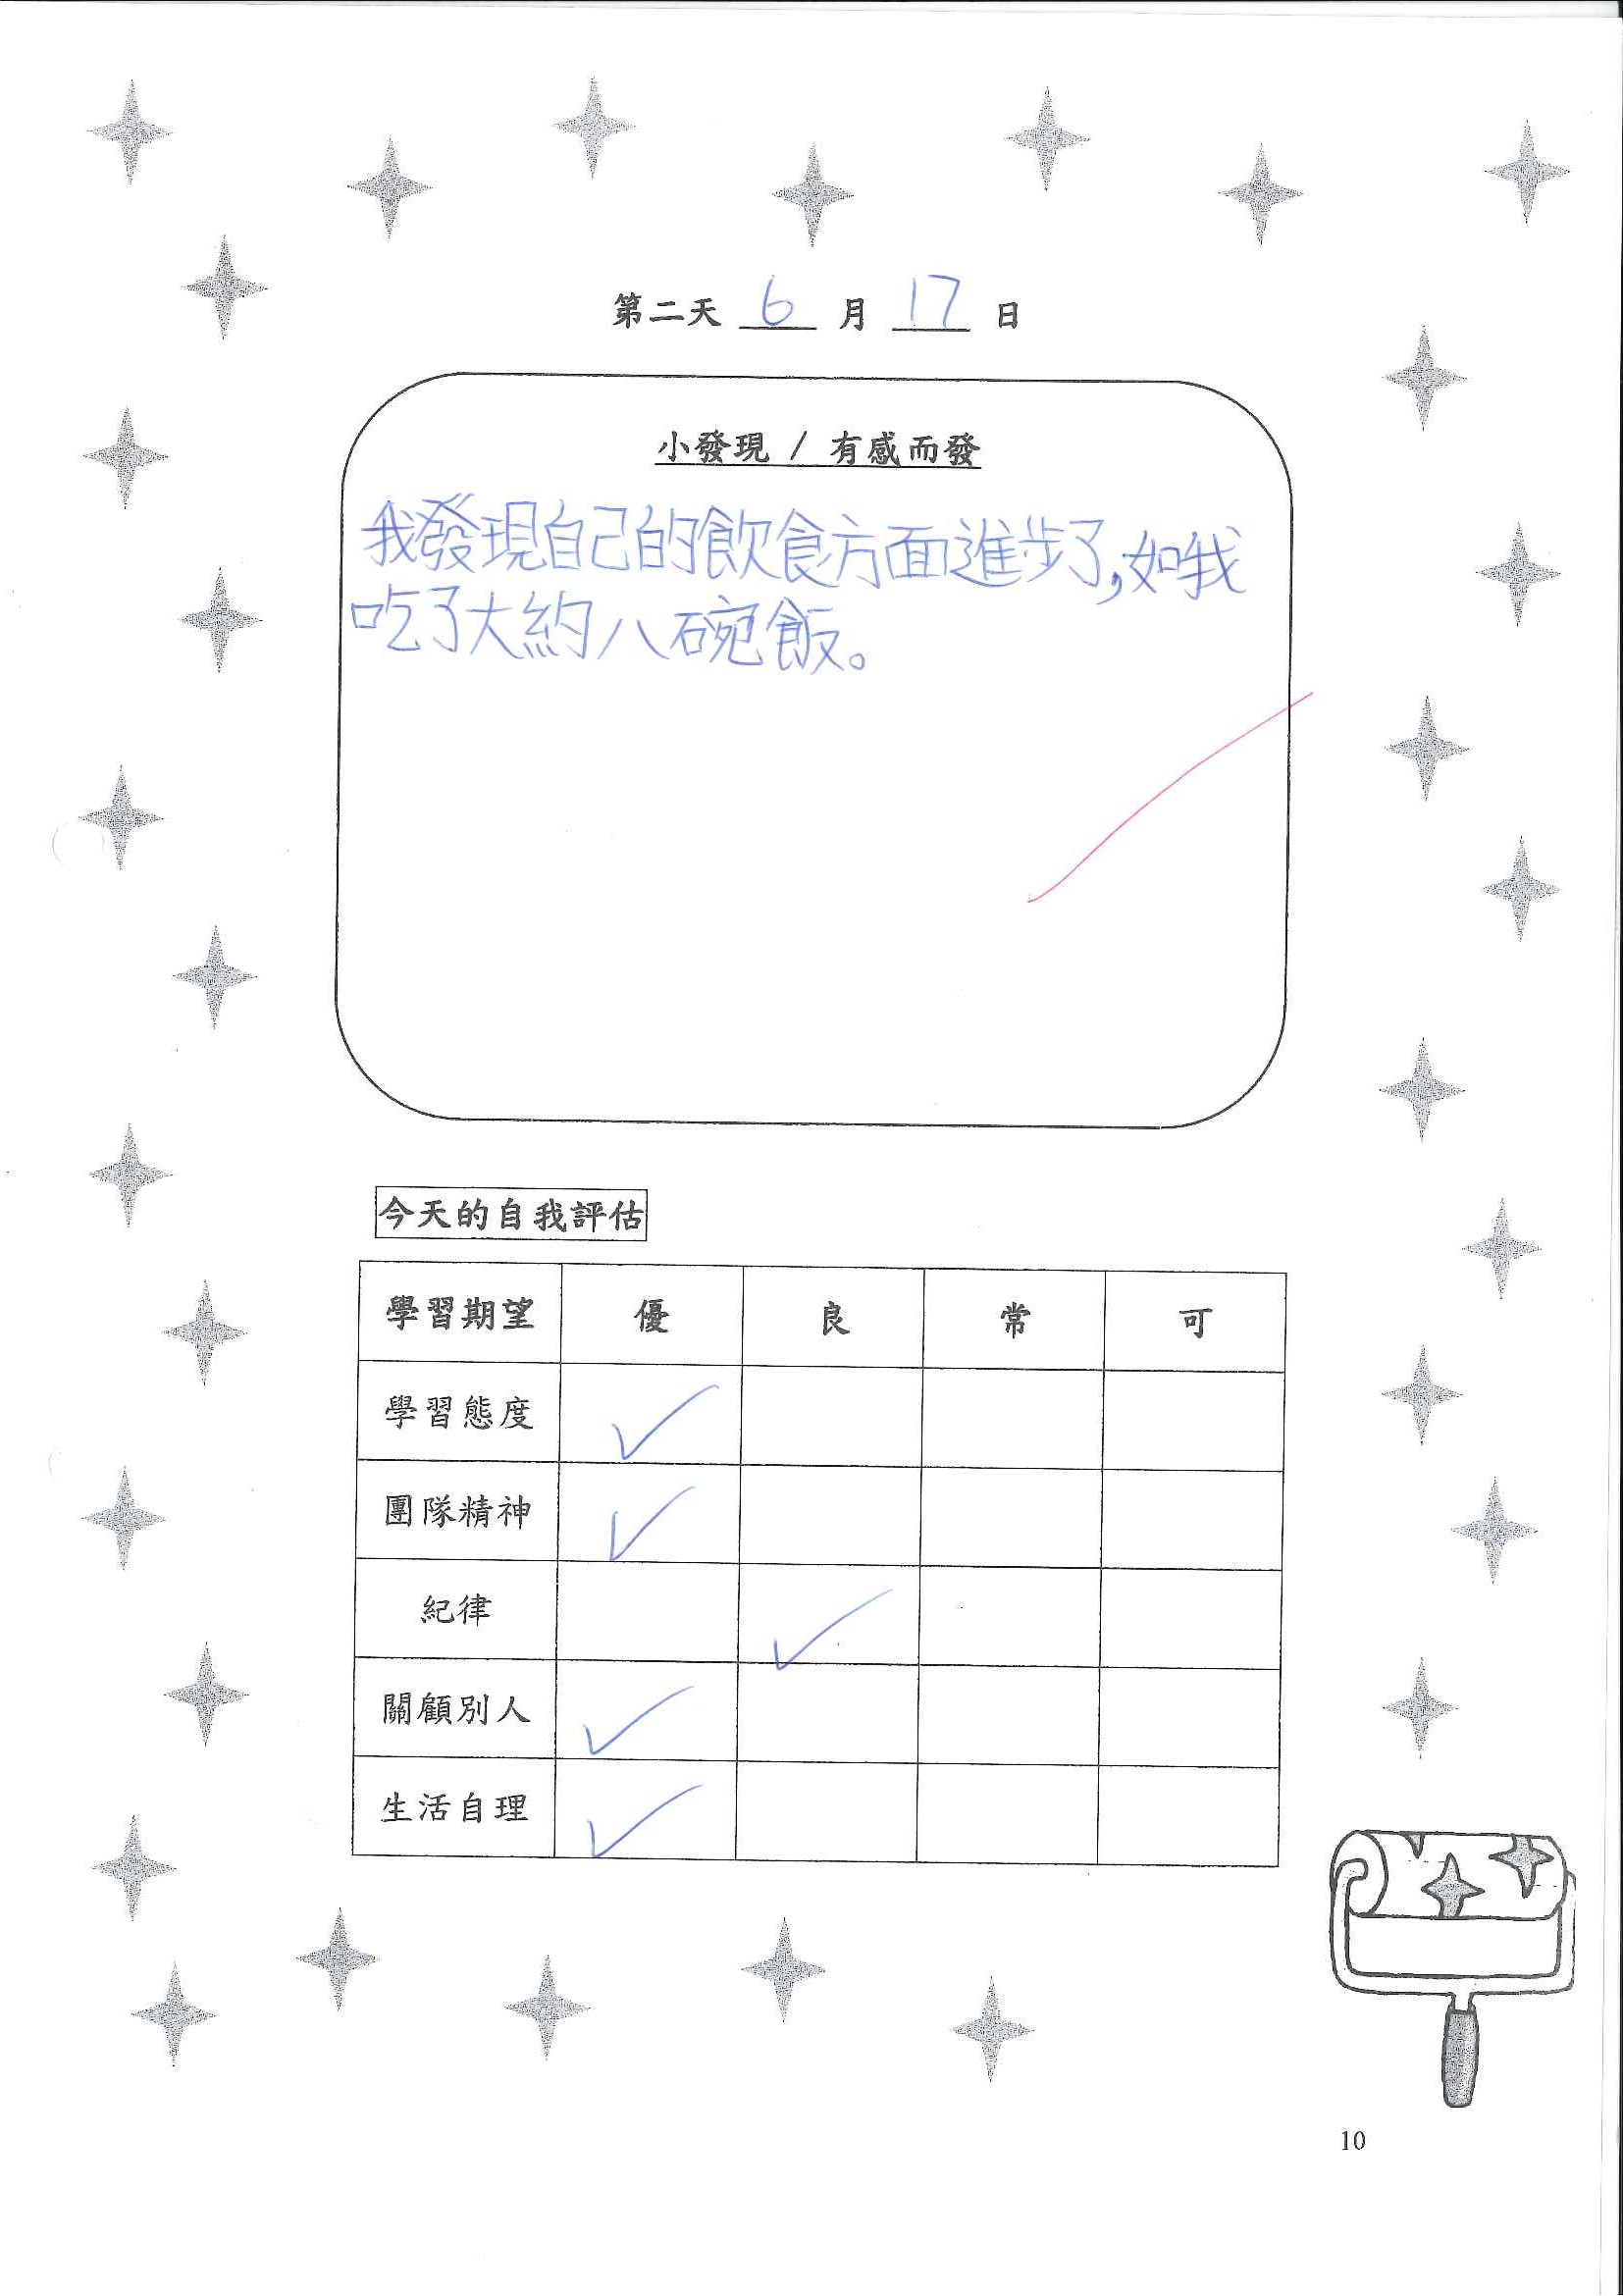 第二天 6 月 17 日
小發現 / 有感而發
我發現自己的飲食方面進步了,如我
吃了大約八碗飯。
今天的自我評估
學習期望 優 良 常 可
學習態度 ✓
團隊精神 ✓
紀律 ✓
關顧別人 ✓
生活自理 ✓
10